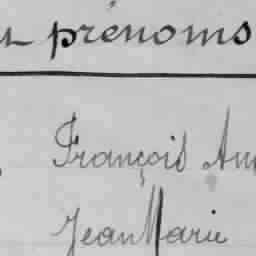 prénoms
François
Jean Marie